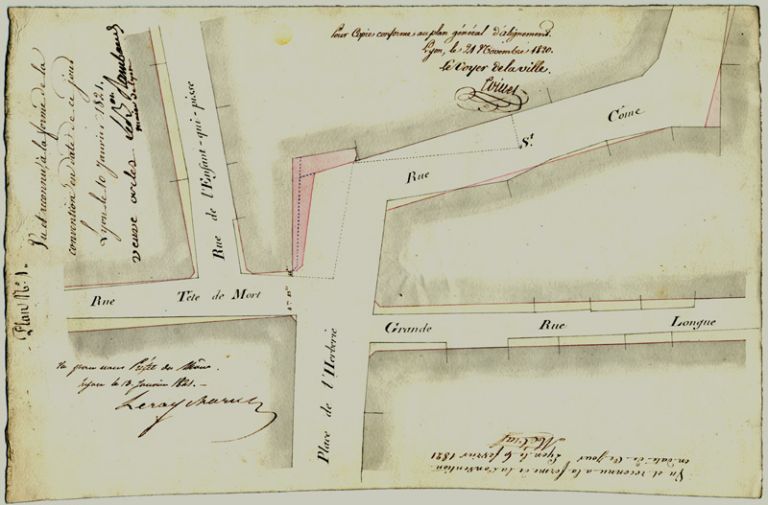 Pour Copie conforme au plan général d'alignement.
Lyon, le 21 Novembre 1820.
Le Voyer de la ville.
Vu et reconnu à la forme de la
convention en date de ce jour
Lyon le 10 Janvier 1821.
veuve
Plan N.º 1.
Rue de l'Enfant-qui-pisse
Rue S.t Côme
Rue Tête de Mort
Place de l'Herberie
Grande Rue Longue
Vu pour nous Préfet du Rhône.
Lyon le 13 Janvier 1821.
Vu et reconnu à la forme de la Convention
en date de ce jour Lyon le 6 février 1821